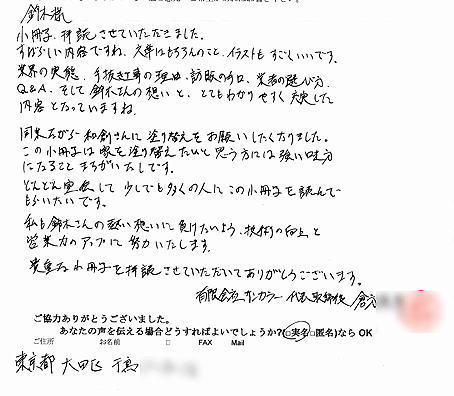 鈴木様
小冊子、拝読させていただきました。
すばらしい内容ですね、文章はもちろんのこと、イラストもすごくいいです。
業界の実態、手抜き工事の理由、訪販の手口、業者の選び方、
Q&A、そして鈴木さんの想いと、とてもわかりやすく充実した
内容となっていますね。
同業ながら和創さんに塗り替えをお願いしたくなりました。
この小冊子は家を塗り替えたいと思う方には強い味方
になることまちがいなしです。
どんどん宣伝して少しでも多くの人にこの小冊子を読んで
もらいたいです。
私も鈴木さんの熱い想いに負けないよう、技術の向上と
営業力のアップに努力いたします。
貴重な小冊子を拝読させていただいてありがとうございます。
有限会社サンカラー 代表取締役
ご協力ありがとうございました。
あなたの声を伝える場合どうすればよいでしょうか?(□実名□匿名)なら OK
ご住所 お名前 □ FAX Mail
東京都 大田区